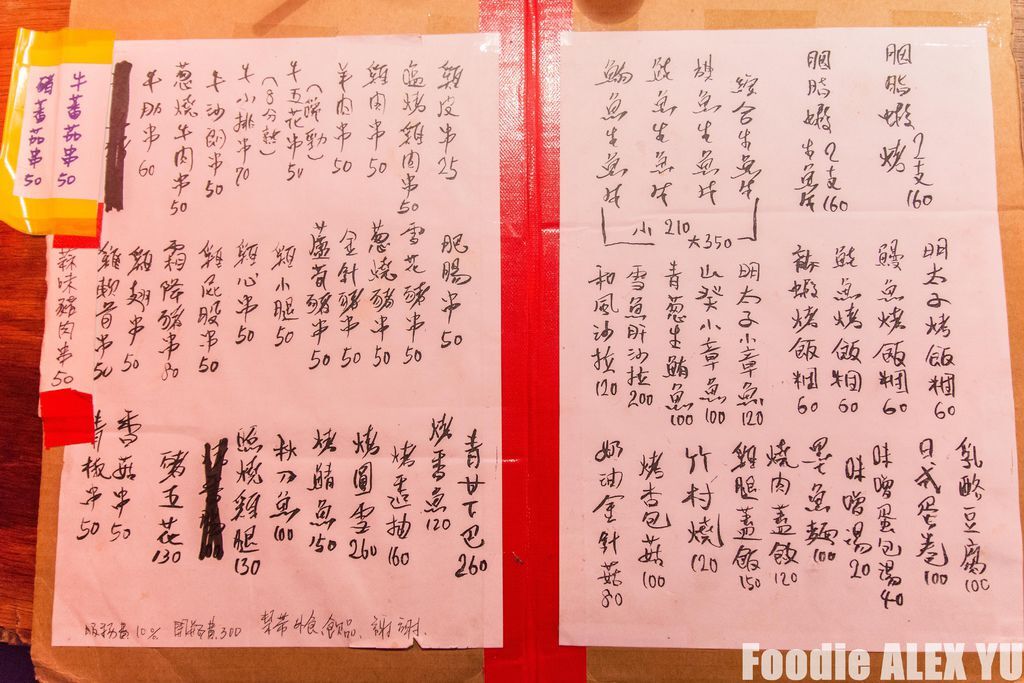 胭脂蝦烤 2支 160
胭脂蝦生魚片 2支 160
綜合生魚片
旗魚生魚片
鮭魚生魚片
鮪魚生魚片
小 210 大 350
明太子烤飯糰 60
鰻魚烤飯糰 60
鮭魚烤飯糰 60
龍蝦烤飯糰 60
明太子小章魚 120
山葵小章魚 100
青葱生鮪魚 100
雪魚肝沙拉 200
和風沙拉 120
乳酪豆腐 100
日式蛋卷 100
味噌蛋包湯 40
味噌湯 20
墨魚麵 100
燒肉蓋飯 120
雞腿蓋飯 150
竹村燒 120
烤香包菇 100
奶油金針菇 80
雞皮串 25
鹽烤雞肉串 50
雞肉串 50
羊肉串 50
牛五花串 50
牛小排串 70
(8分熟)
牛沙朗串 50
葱燒牛肉串 50
牛肋串 60
牛蕃茄串 50
豬蕃茄串 50
肥腸串 50
雪花豬串 50
葱燒豬串 50
金針豬串 50
蘆筍豬串 50
雞小腿 50
雞心串 50
雞屁股串 50
霜降豬串 80
雞翅串 50
雞軟骨串 50
蒜味豬肉串 50
青甘下巴 260
烤香魚 120
烤透抽 160
烤圓雪 260
烤鯖魚 150
秋刀魚 100
照燒雞腿 130
豬五花 130
香菇串 50
青椒串 50
服務費10% 開瓶費300 禁帶外食,飲品,謝謝.
Foodie ALEX YU